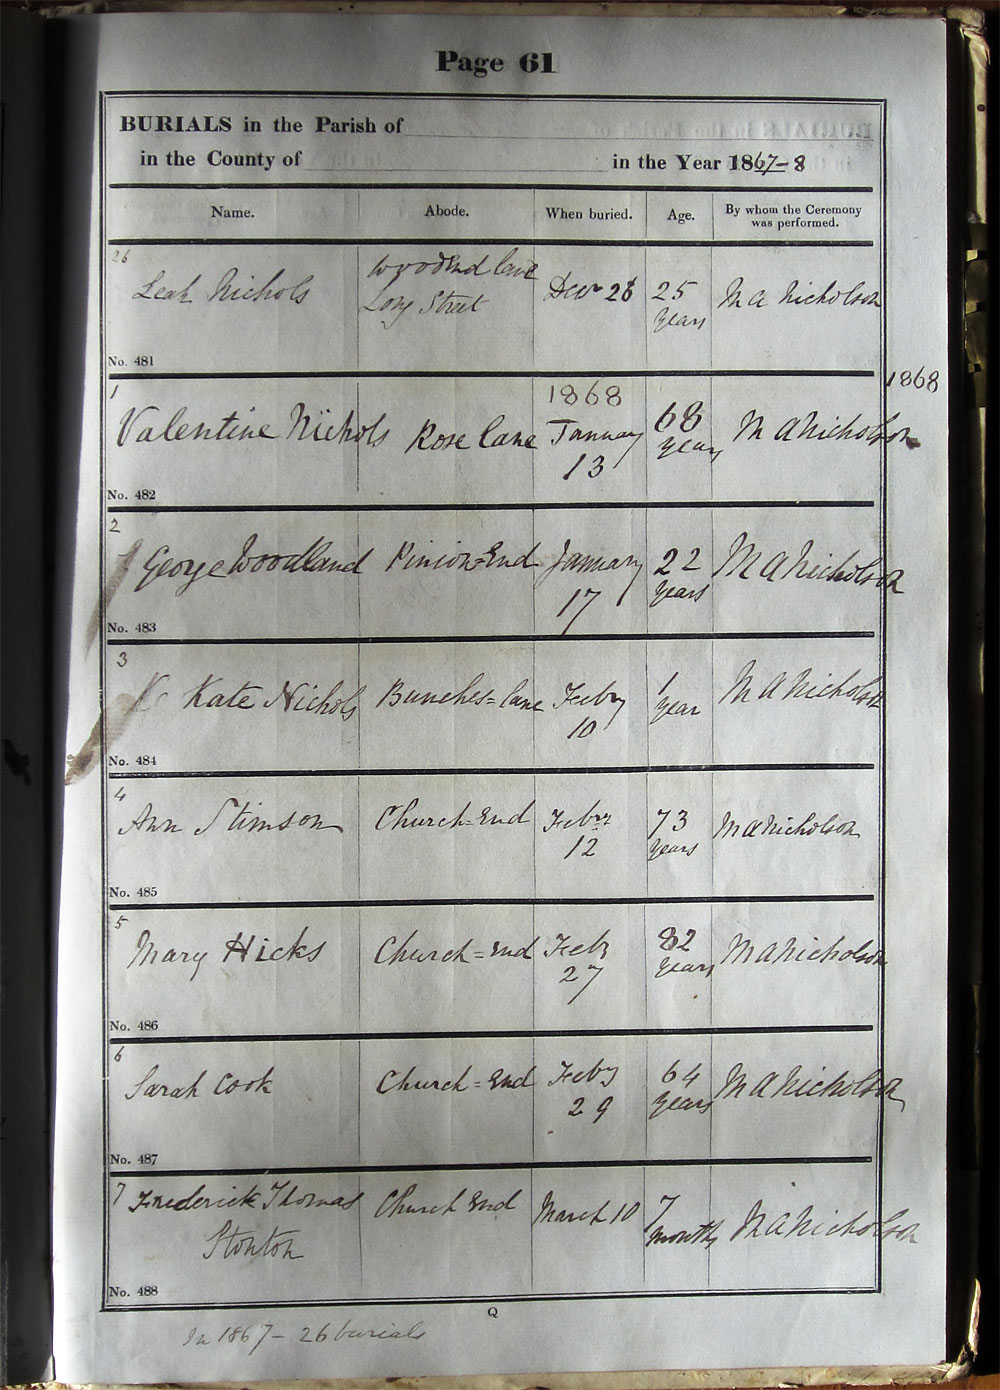 Page 61
BURIALS in the Parish of
in the County of in the Year 1867-8
Name. Abode. When buried. Age. By whom the Ceremony was performed.
26
Leah Nichols Woodend lane Long Street Decr 26 25 years M A Nicholson
No. 481
1868
1
Valentine Nichols Rose lane 1868 January 13 68 years M A Nicholson
No. 482
2
George Woodland Pinion=End January 17 22 years M A Nicholson
No. 483
3
Kate Nichols Bunches=lane Feby 10 1 year M A Nicholson
No. 484
4
Ann Stimson Church=End Febry 12 73 years M A Nicholson
No. 485
5
Mary Hicks Church=End Feby 27 82 years M A Nicholson
No. 486
6
Sarah Cook Church=End Feby 29 64 years M A Nicholson
No. 487
7
Frederick Thomas Stonton Church End March 10 7 months M A Nicholson
No. 488
Q
In 1867 - 26 burials